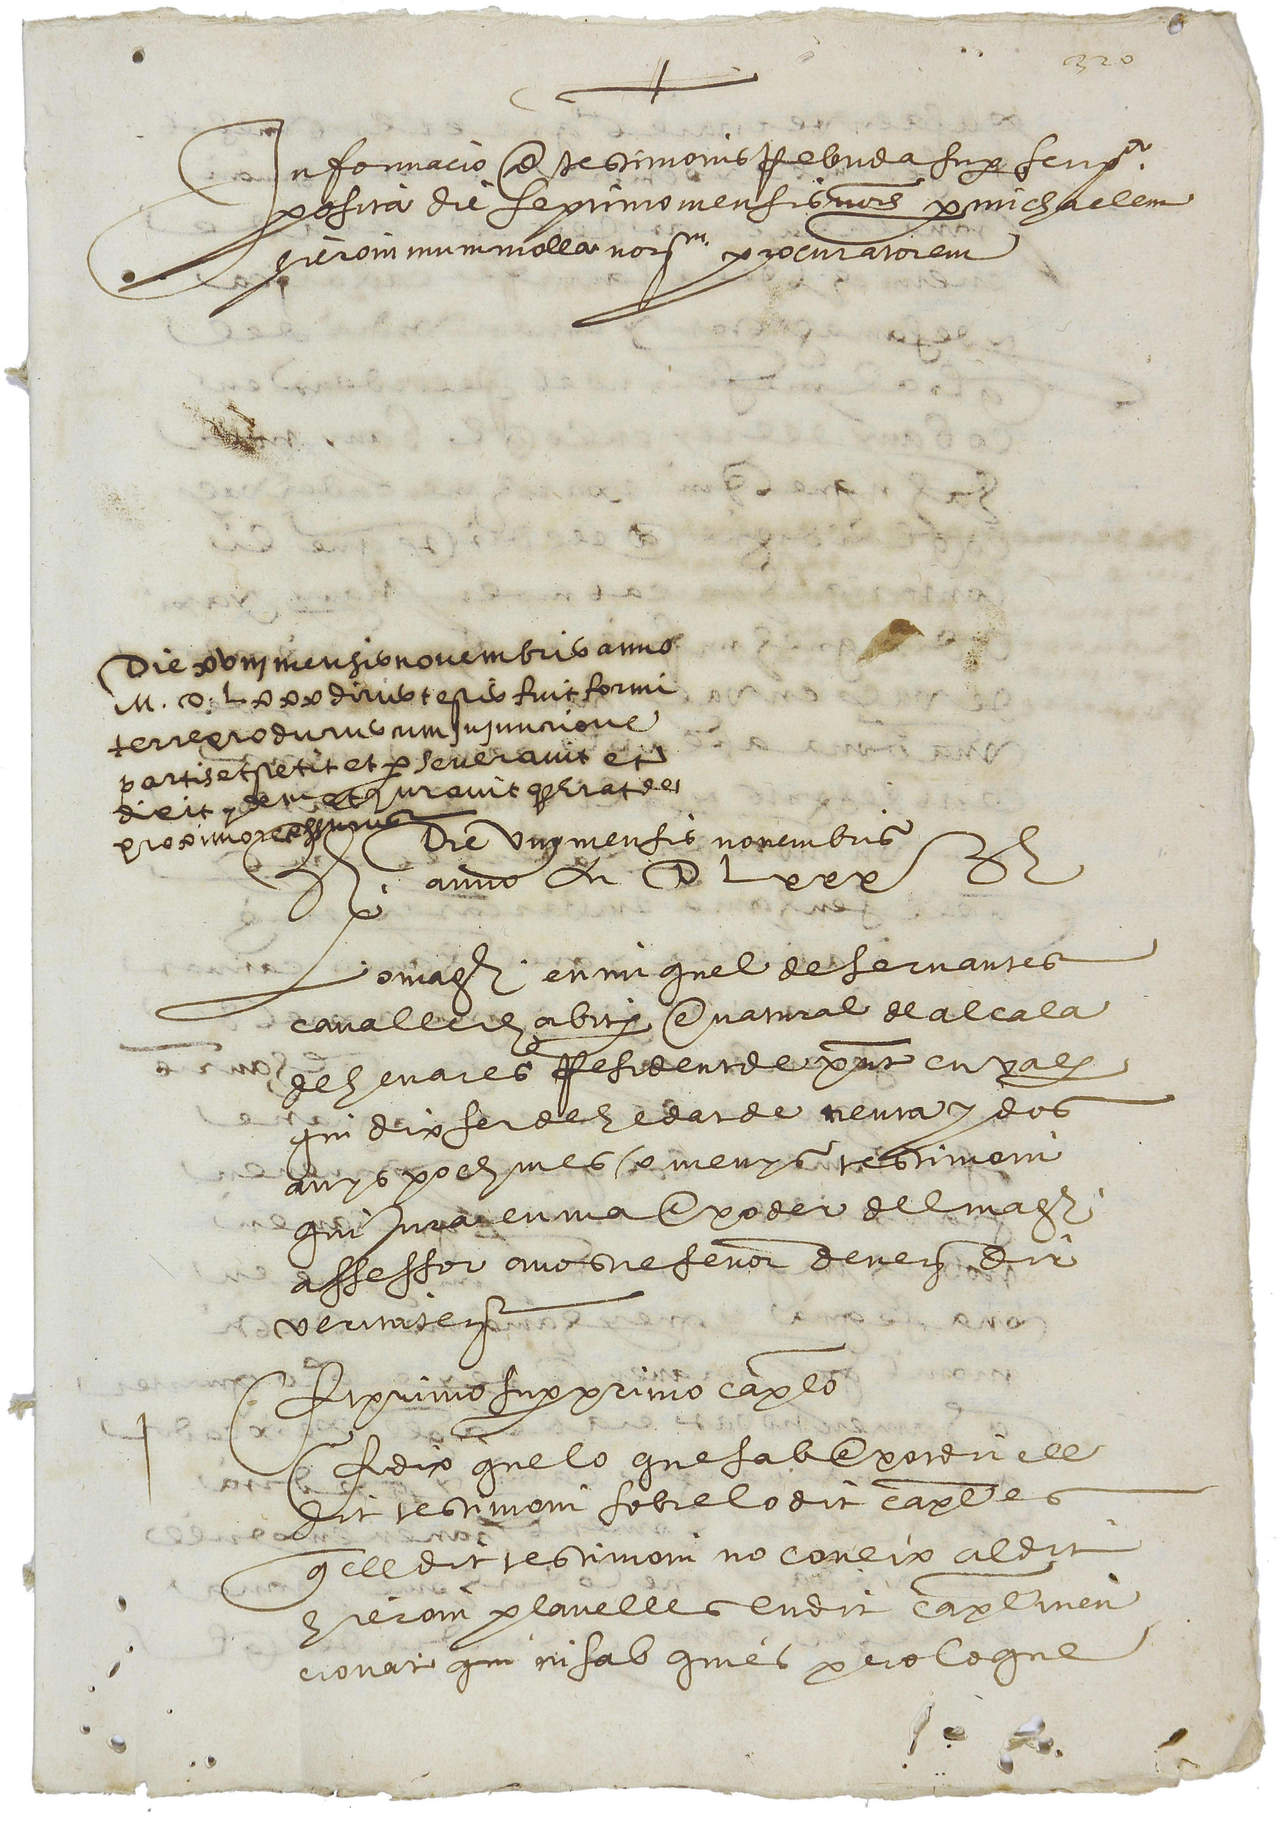 320
Informacio @ testimonis Rebuda sup scriptr.
posita die septimo mensis novs p michaelem
hieroni mum molla notm. procuratorem
Die xviiij mensis novembris anno
M. D. Lxxx dictus testis fuit formi
ter reproductus cum iniunctione
partis et stetit et perseveravit et
dicit et juravit
proximo
Die viiij mensis novembris
anno M D Lxxx
Lo magch. en miquel de servantes
cavaller habitr. e natural de alcala
de henares Resident de pnt en vala
qui dix ser de hedat de trenta y dos
anys poch mes o menys testimoni
qui jura en ma e poder del magch.
assessor a nostre senor deu etc dir
veritat etc
Et primo sup primo caplo
E dix que lo que sab e pot dir ell
dit testimoni sobre lo dit capl es
q ell dit testimoni no coneix al dit
hieroni planelles en dit capl men
cionat qui ni sab qui es pero lo que